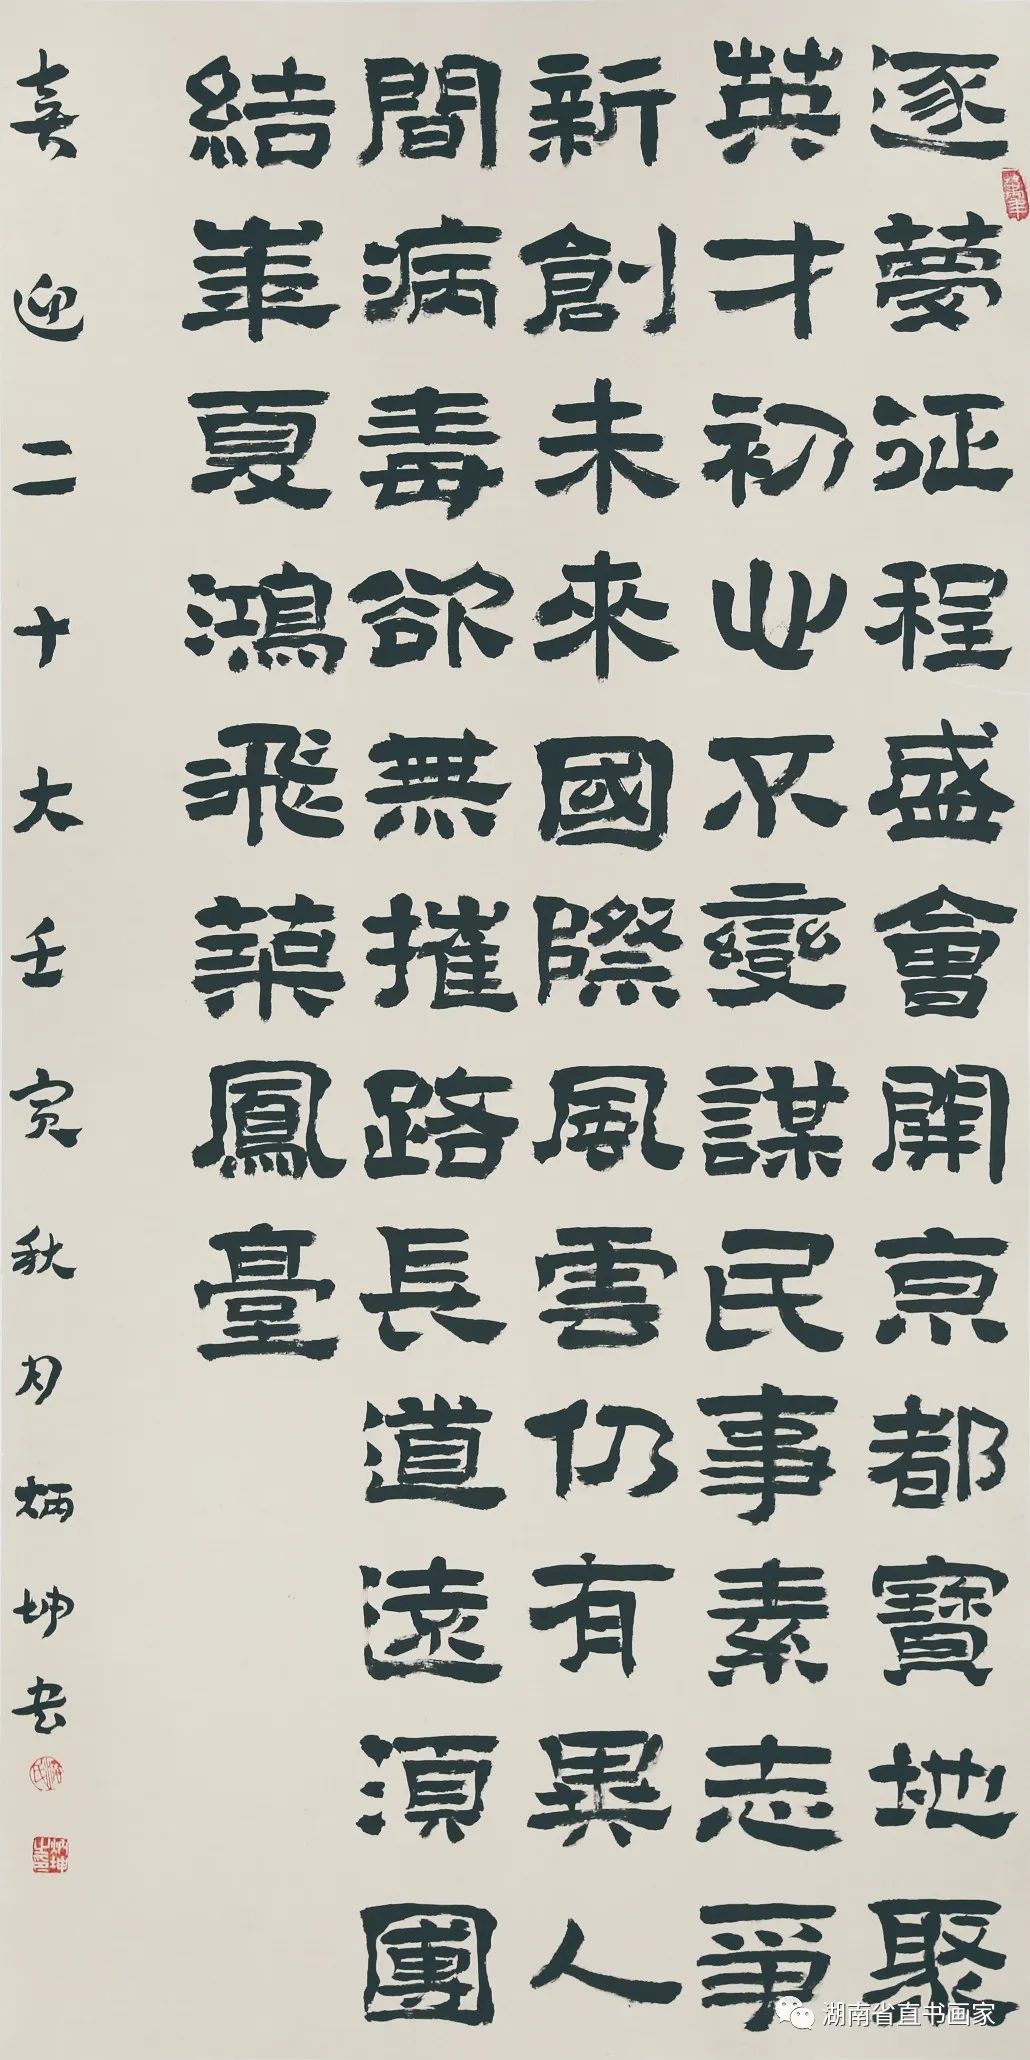 逐夢征程盛會開京都寶地聚
英才初心不變謀民事素志爭
新創未來國際風雲仍有異人
間病毒欲無摧路長道遠須團
結華夏鴻飛築鳳臺
喜迎二十大壬寅秋月炳坤书
炳坤之印
湖南省直书画家